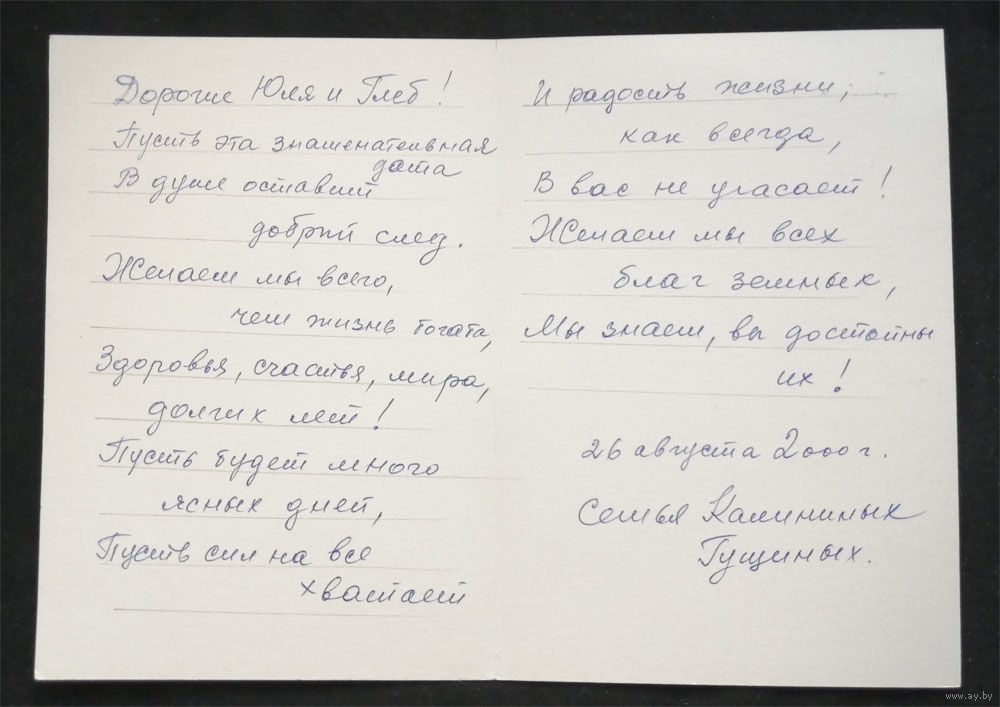 Дорогие Юля и Глеб!
Пусть эта знаменательная
дата
В душе оставит
добрый след.
Желаем мы всего,
чем жизнь богата,
Здоровья, счастья, мира,
долгих лет!
Пусть будет много
ясных дней,
Пусть сил на все
хватает
И радость жизни,
как всегда,
В вас не угасает!
Желаем мы всех
благ земных,
Мы знаем, вы достойны
их!
26 августа 2000 г.
Семья Калининых
Гущиных.
www.ay.by